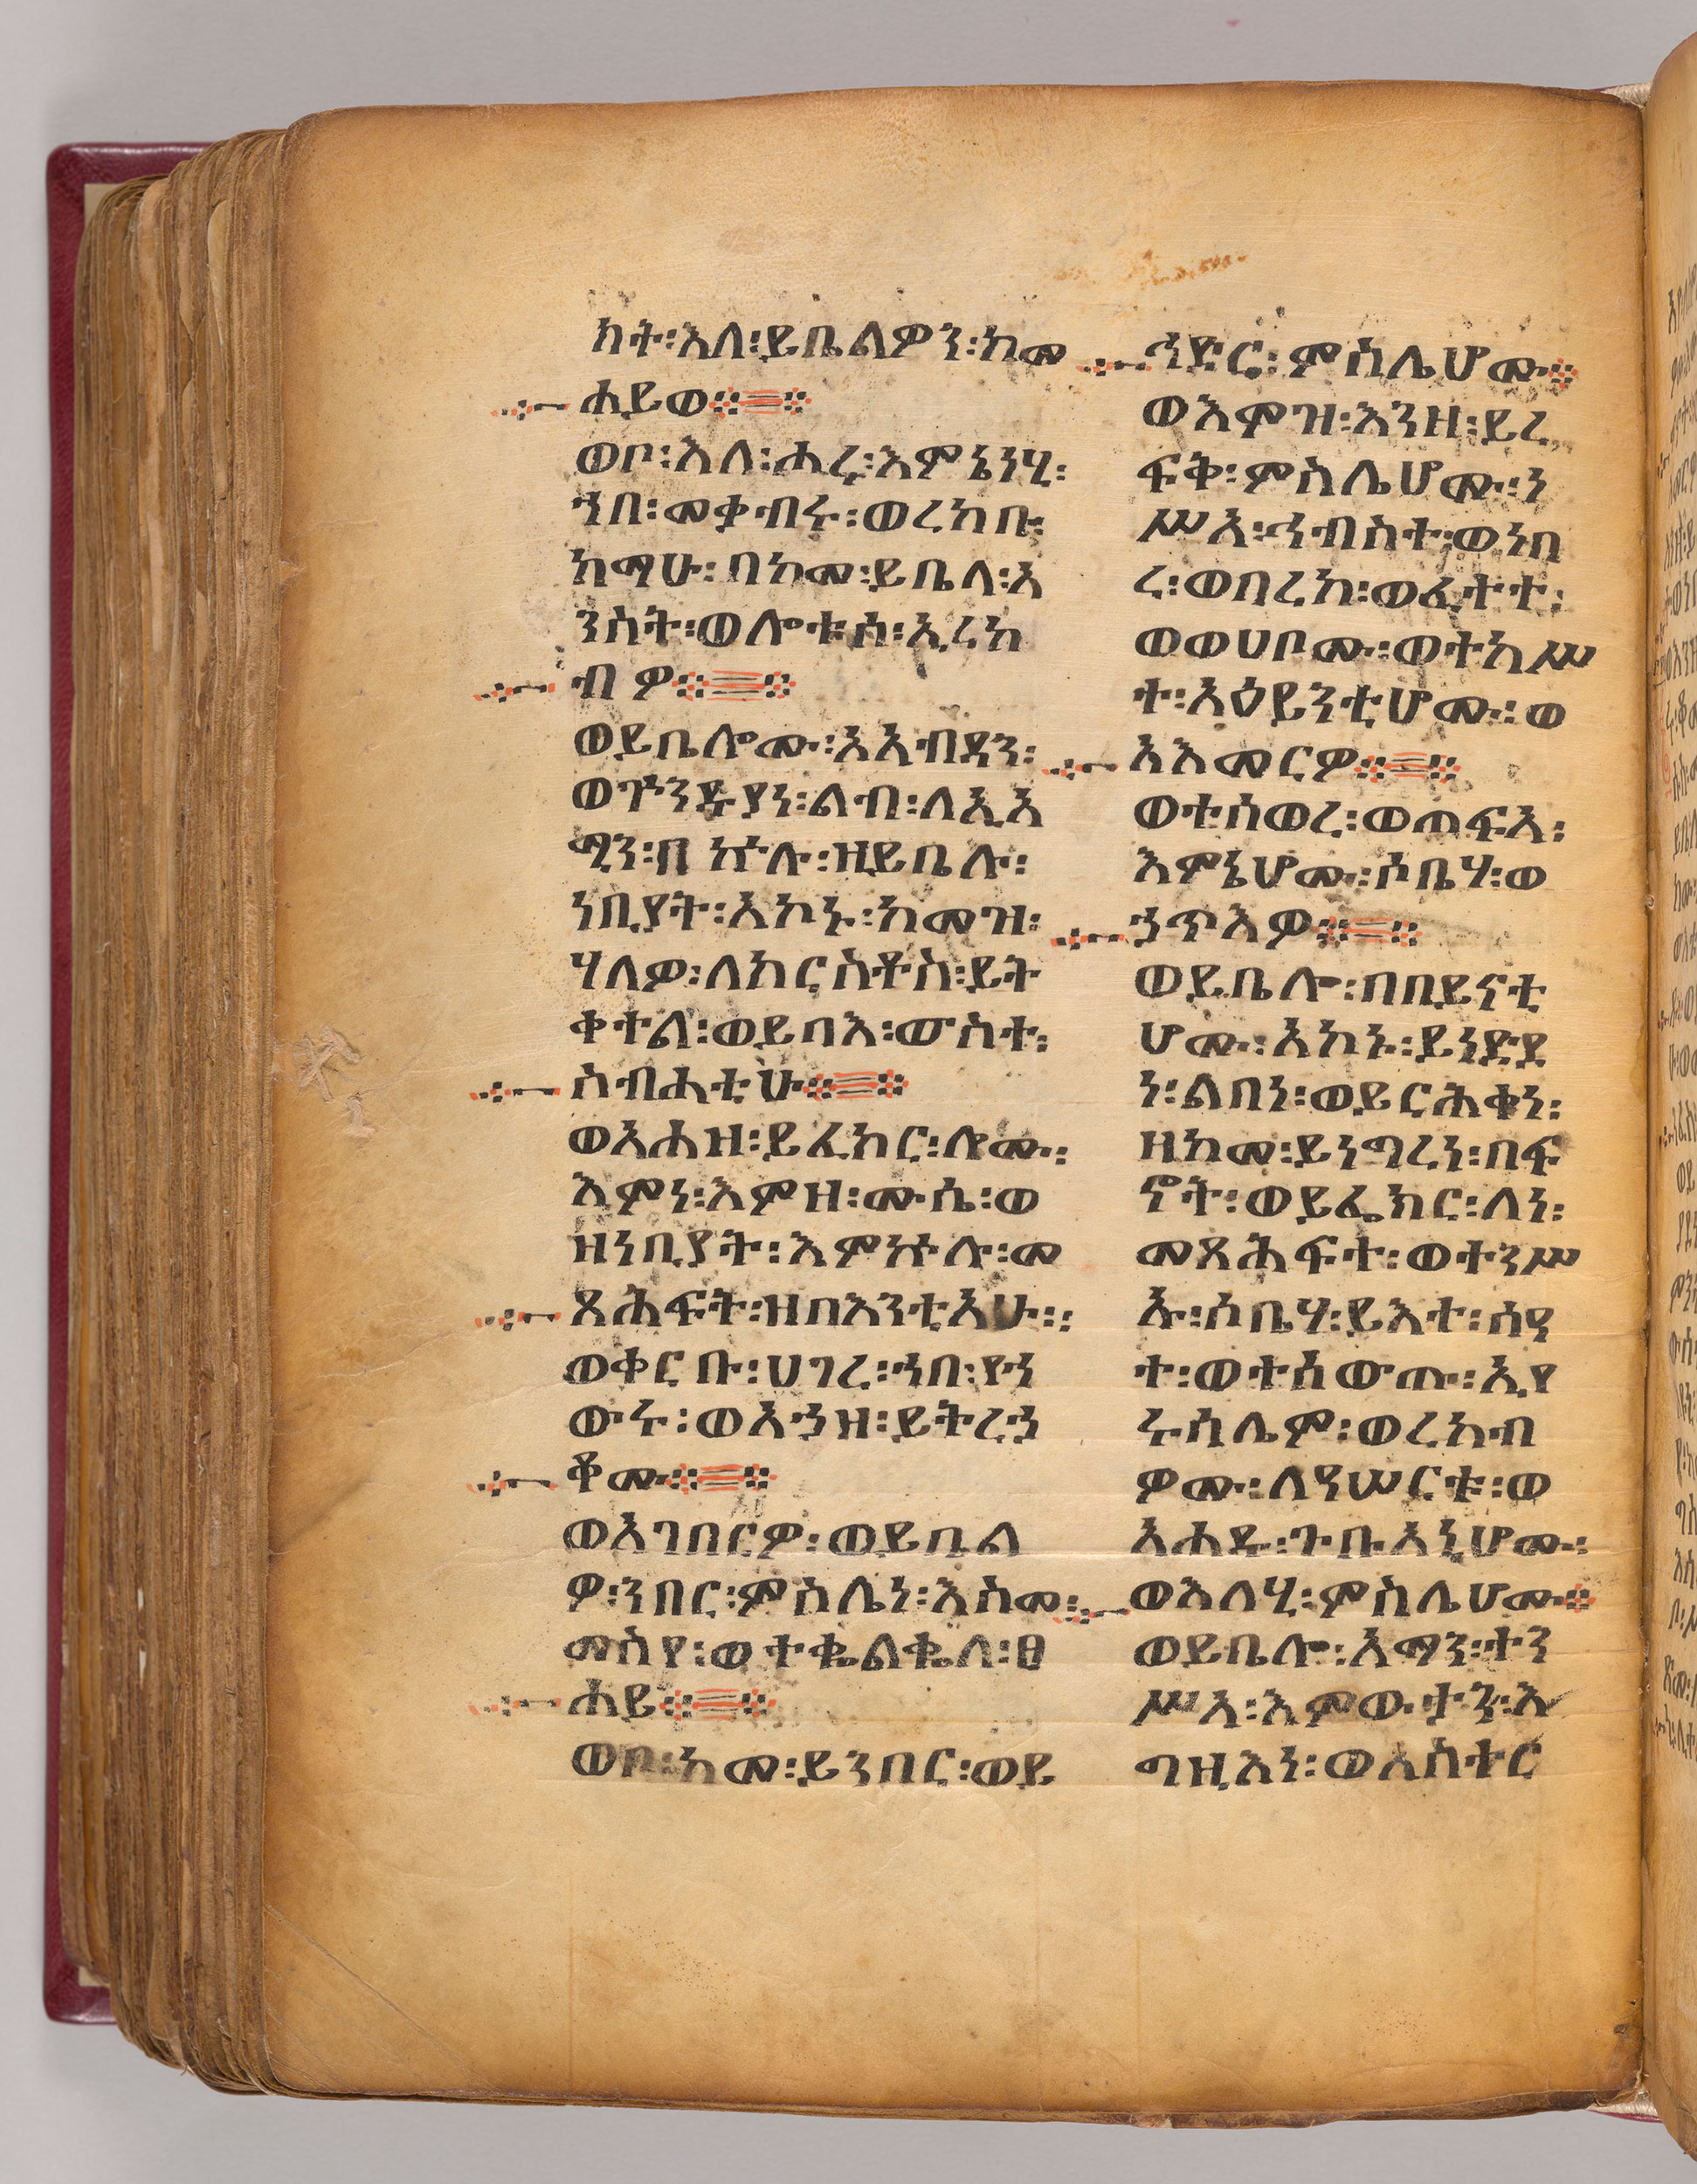 ክት፡እለ፡ይቤልዎን፡ከመ
ሐይወ፨
ወቦ፡እለ፡ሖሩ፡እምኔነሂ፡
ኀበ፡መቃብሩ፡ወረከቡ፡
ከማሁ፡በከመ፡ይቤላ፡አ
ንስት፡ወሎቱሰ፡ኢረከ
ብዎ፨
ወይቤሎሙ፡አአብዳን፡
ወጕንዱያነ፡ልብ፡ለአአ
ሚን፡በኵሉ፡ዘይቤሉ፡
ነቢያት፡አኮኑ፡ከመዝ፡
ሃለዎ፡ለክርስቶስ፡ይት
ቀተል፡ወይባእ፡ውስተ፡
ስብሐቲሁ፨
ወአሐዘ፡ይፈክር፡ሎሙ፡
እምነ፡እምዘ፡ሙሴ፡ወ
ዘነቢያት፡እምኵሉ፡መ
ጻሕፍት፡ዘበእንቲአሁ፡፡
ወቀርቡ፡ሀገረ፡ኀበ፡የኀ
ውሩ፡ወአኀዘ፡ይትረኀ
ቆሙ፨
ወአገበርዎ፡ወይቤል
ዎ፡ንበር፡ምስሌነ፡እስመ፡
መስየ፡ወተቈልቈለ፡ፀ
ሐይ፨
ወቦአ፡ከመ፡ይንበር፡ወይ
ኅድር፡ምስሌሆሙ፨
ወእምዝ፡እንዘ፡ይረ
ፍቅ፡ምስሌሆሙ፡ነ
ሥአ፡ኅብስተ፡ወነበ
ረ፡ወባረከ፡ወፈተተ፡
ወወሀቦሙ፡ወተከሥ
ተ፡አዕይንቲሆሙ፡ወ
አእመርዎ፨
ወተሰወረ፡ወጠፍአ፡
እምኔሆሙ፡ሶቤሃ፡ወ
ኀጥአዎ፨
ወይቤሎ፡በበይናቲ
ሆሙ፡አኮኑ፡ይነድደ
ነ፡ልበነ፡ወይርሕቀነ፡
ዘከመ፡ይነግረነ፡በፍ
ኖት፡ወይፌክር፡ለነ፡
መጻሕፍተ፡ወተንሥ
ኡ፡ሶቤሃ፡ይእተ፡ሰዓ
ተ፡ወተሰውጡ፡ኢየ
ሩሳሌም፡ወረከብ
ዎሙ፡ለዓሠርቱ፡ወ
አሐዱ፡ጉቡአኒሆሙ፡
ወእለሂ፡ምስሌሆሙ፨
ወይቤሎ፡አማን፡ተን
ሥአ፡እምውታን፡እ
ግዚእነ፡ወአስተር